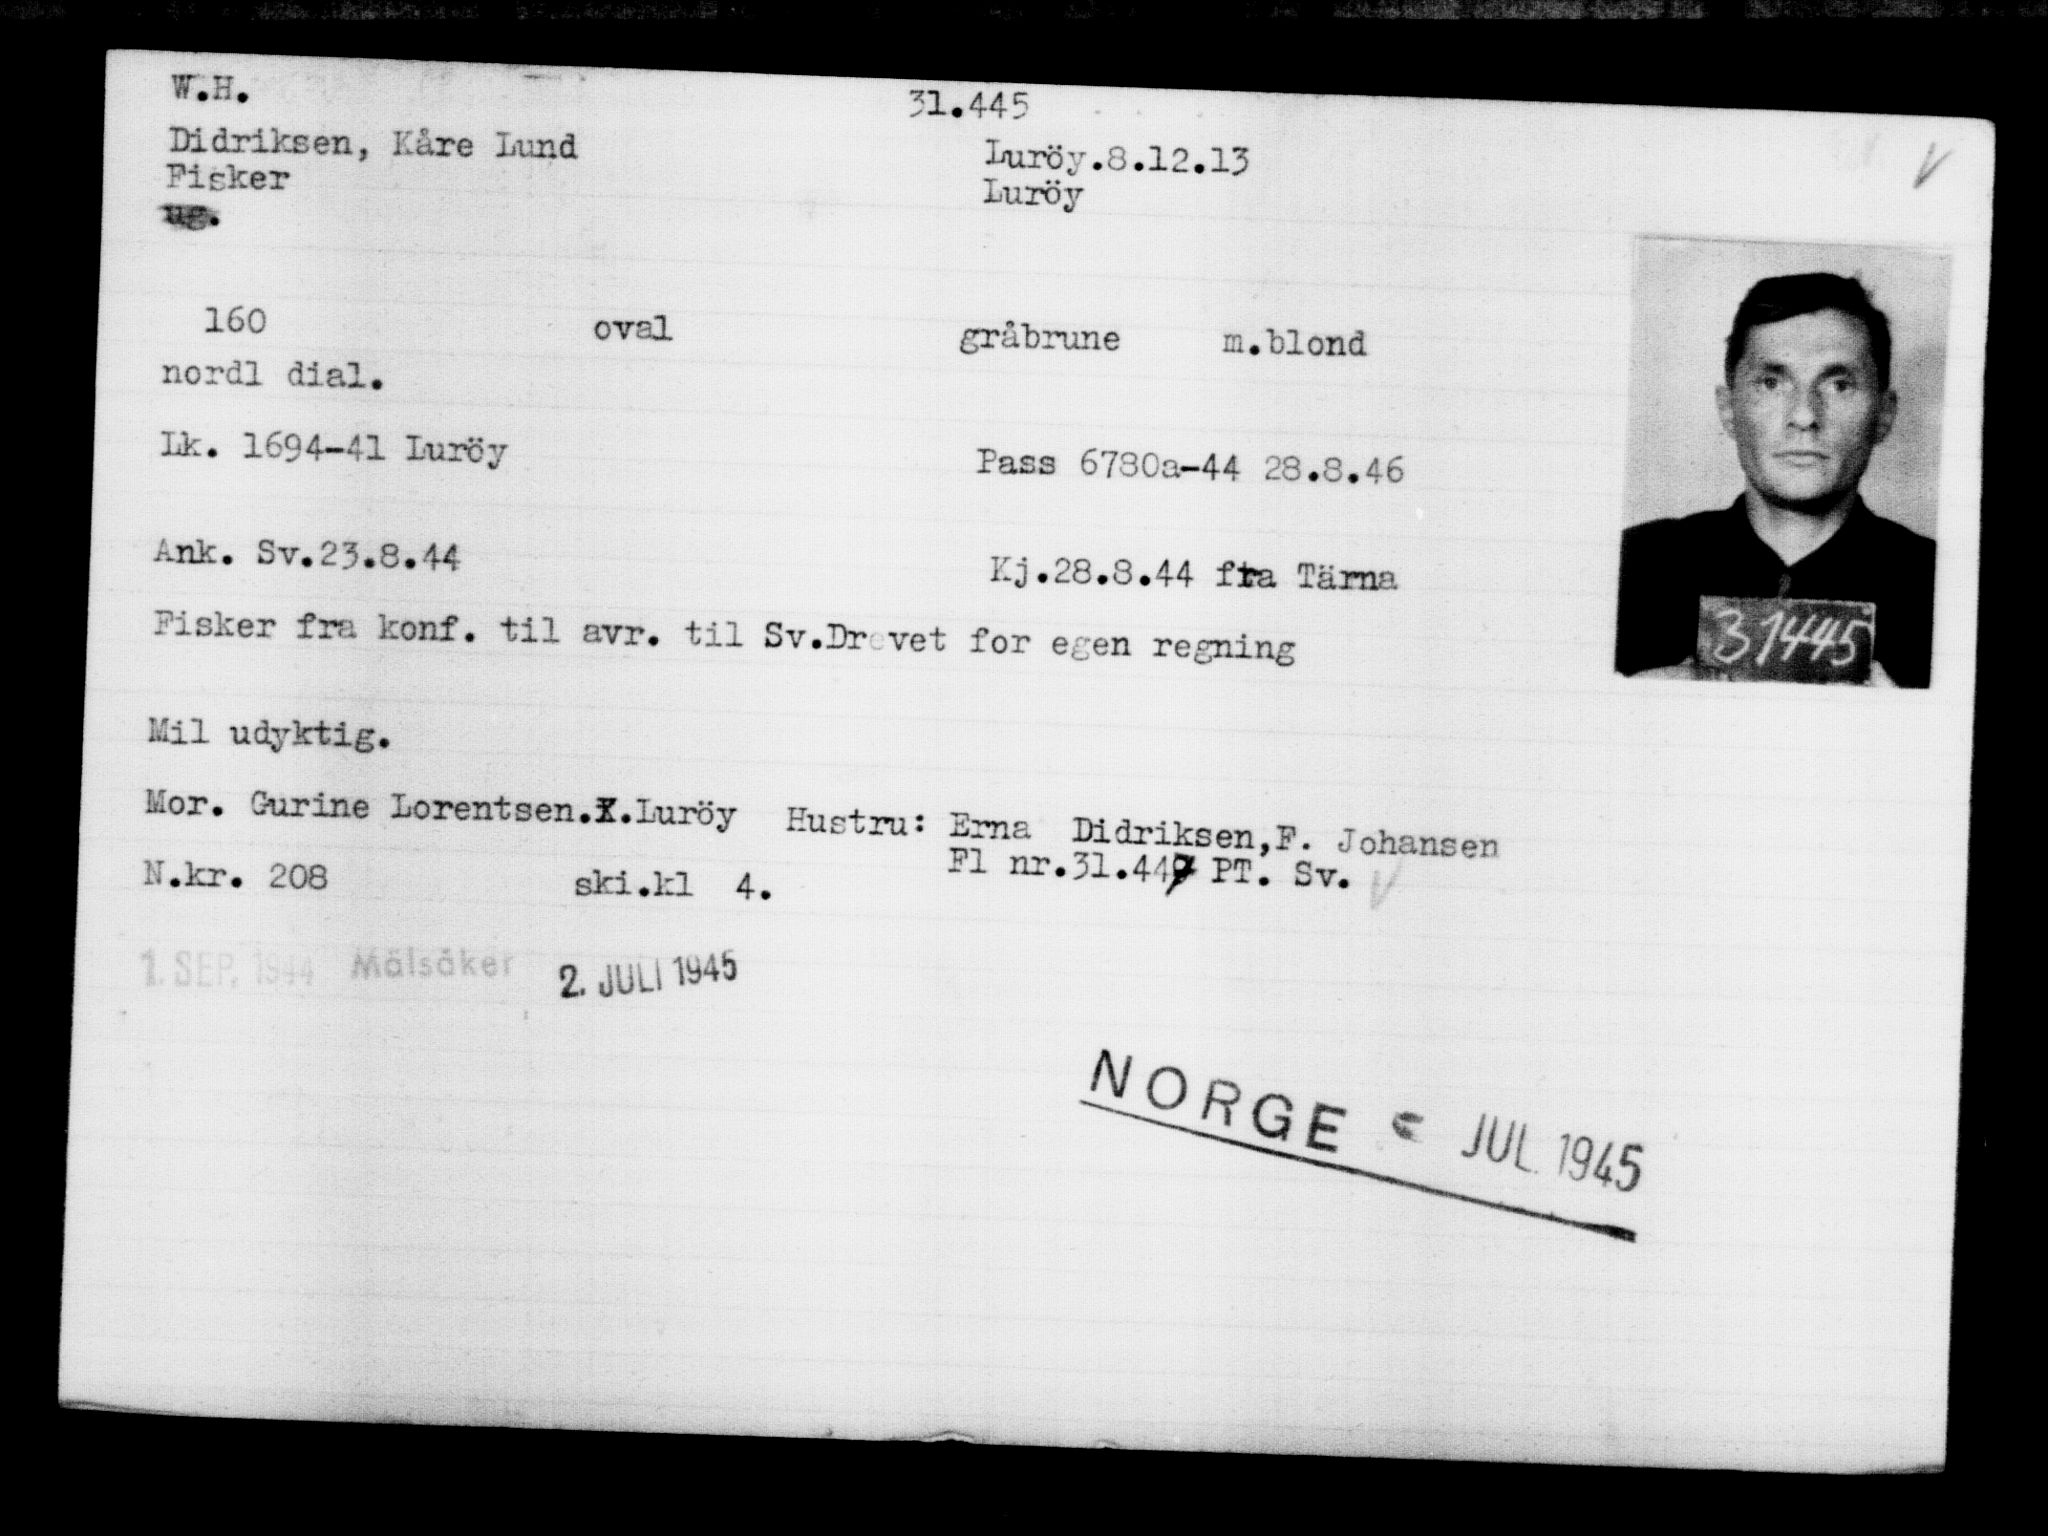 W.H.
31.445
Didriksen, Kåre Lund
Luröy.8.12.13
Fisker
Luröy
ug.
160 oval gråbrune m.blond
nordl dial.
Lk. 1694-41 Luröy
Pass 6780a-44 28.8.46
Ank. Sv.23.8.44
Kj.28.8.44 fra Tärna
Fisker fra konf. til avr. til Sv.Drevet for egen regning
Mil udyktig.
Mor. Gurine Lorentsen. .Luröy Hustru: Erna Didriksen,F. Johansen
Fl nr. PT. Sv.
N.kr. 208 ski.kl 4.
1. SEP. 1944 Mälsåker 2. JULI 1945
NORGE JUL. 1945
31445